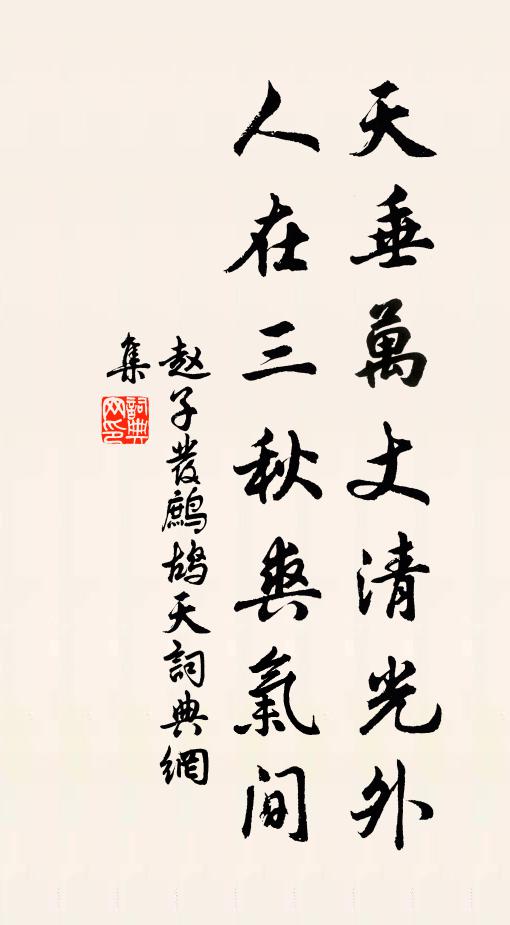 天垂萬丈清光外
人在三秋爽氣间
赵子發鷓鴣天詞典網
集
詞典
网印